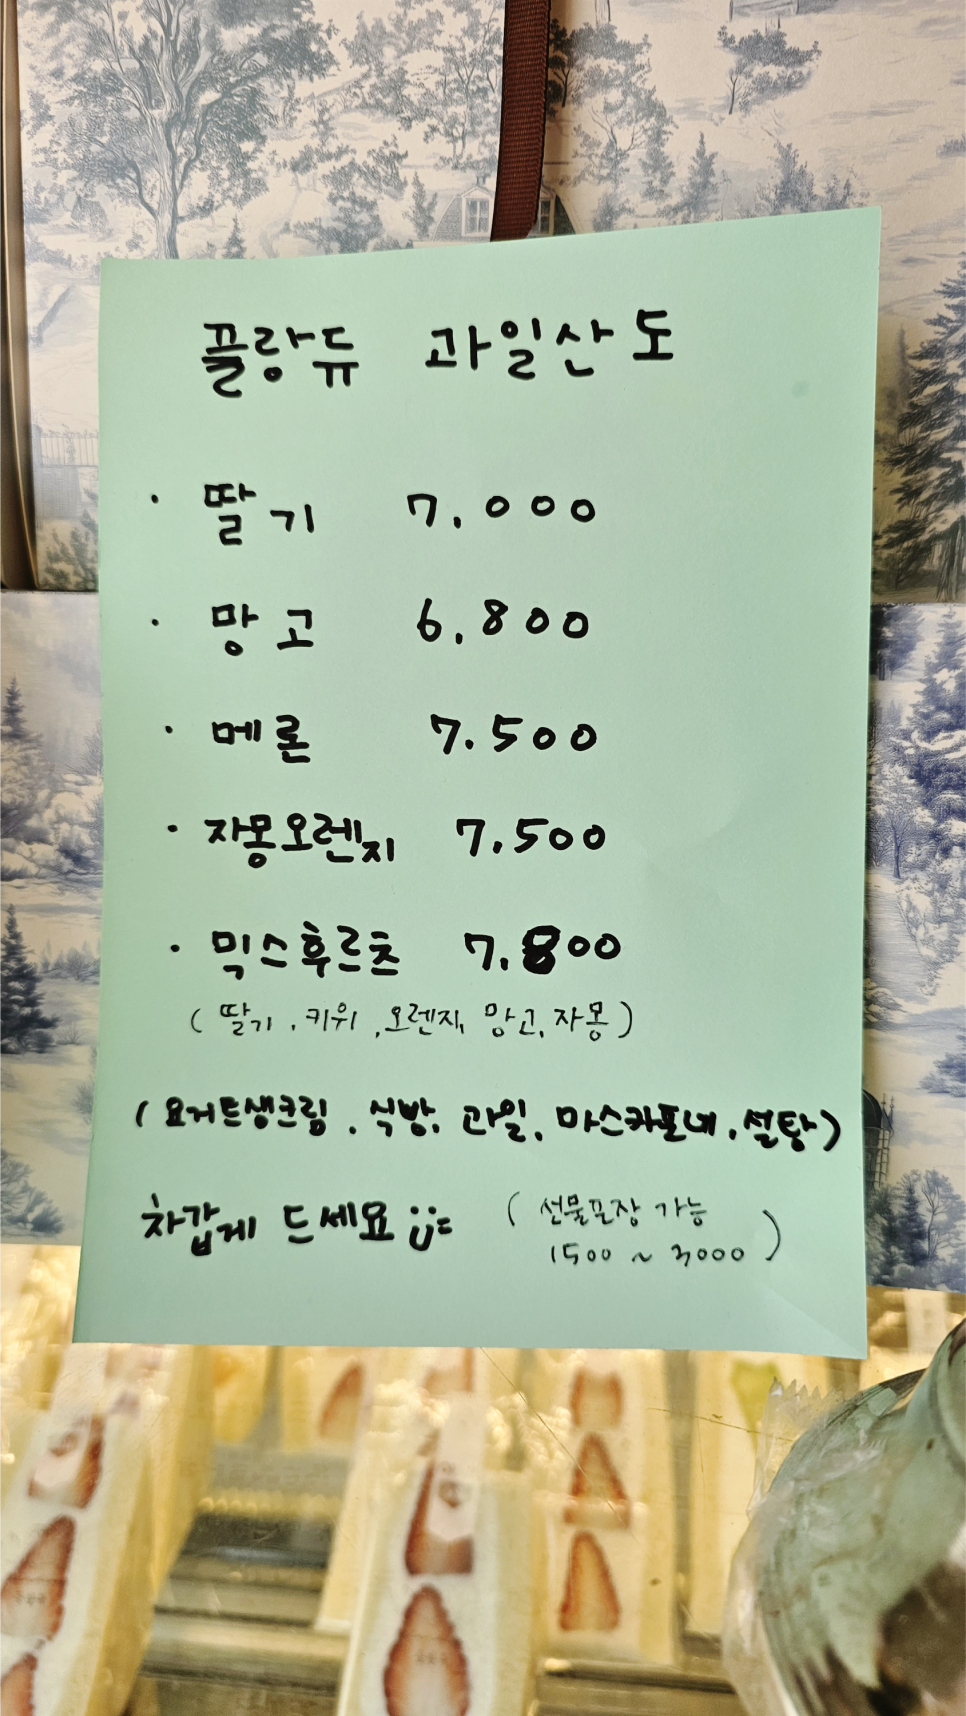 끌랑듀 과일산도
· 딸기 7,000
· 망고 6,800
· 메론 7,500
· 자몽오렌지 7,500
· 믹스후르츠 7,800
( 딸기, 키위, 오렌지, 망고, 자몽 )
( 요거트생크림, 식빵, 과일, 마스카포네, 설탕 )
차갑게 드세요
( 선물포장 가능
1500 ~ 3000 )